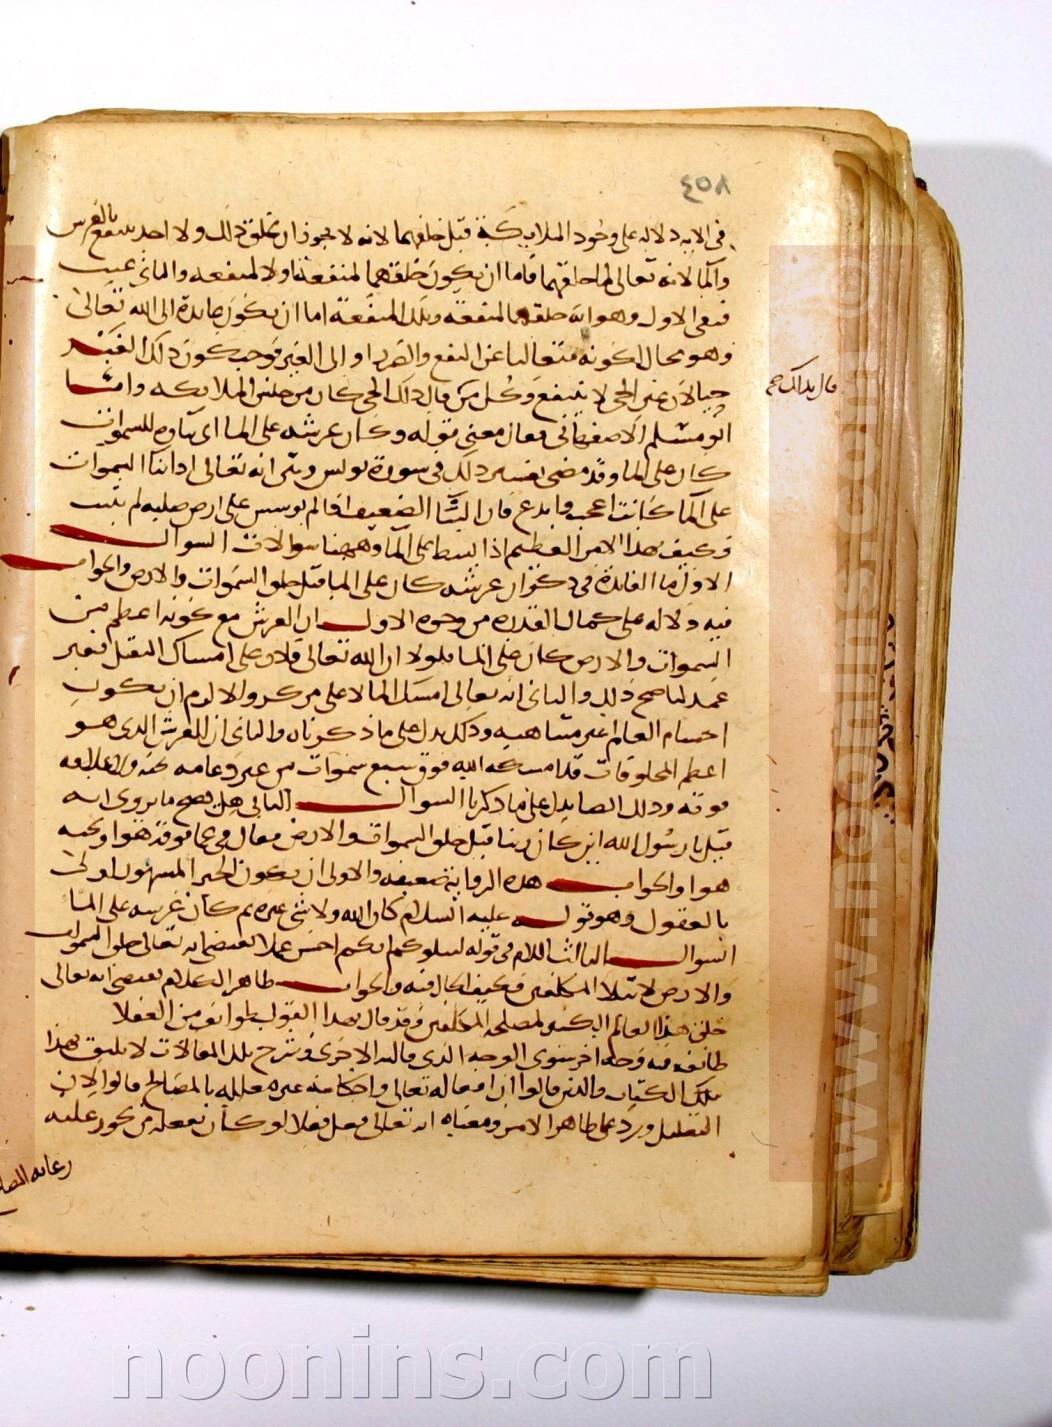 ٨٥٤
في الآية دلالة على وجود الملايكة قبل خلقهما لانه لا يجوز ان يخلق ذلك ولا احد ينتفع بالعرش
والما لانه تعالى لما خلقهما فاما ان يكون خلقهما لمنفعة اولا لمنفعة والثاني عبث
فبقى الاول وهو انه خلقهما لمنفعة وتلك المنفعة اما ان تكون عايدة الى الله تعالى
وهو محال لكونه متعاليا عن النفع والضر او الى الغير فوجب كون ذلك الغير
حيا لان غير الحي لا ينتفع وكل من قال ذلك الحي كان من جنس الملايكة واما
ابو مسلم الاصفهاني فقال معنى قوله وكان عرشه على الما اى بناوه للسموات
كان على الما وقد مضى تفسير ذلك في سورة يونس وبين انه تعالى اذا بنا السموات
على الما كانت اعجب وابدع فان البنا الضعيف اذا لم يوسس على ارض صلبة لم يثبت
فكيف بهذا الامر العظيم اذا بسط على الما وههنا سوالات السوال
الاول ما الفايدة في ذكر ان عرشه كان على الما قبل خلق السموات والارض والجواب
فيه دلاله على كمال القدرة من وجوه الاول ان العرش مع كونه اعظم من
السموات والارض كان على الما فلولا ان الله تعالى قادر على امساك الثقيل بغير
عمد لما صح ذلك والثاني انه تعالى امسك الما لا على مركز والا لزم ان يكون
اجسام العالم غير متناهية وذلك يدل على ما ذكرناه والثالث ان العرش الذى هو
اعظم المخلوقات قد امسكه الله فوق سبع سموات من غير دعامة تحته ولا علاقة
فوقه وذلك ايضا يدل على ما ذكرنا السوال الثاني هل يصح ما يروى انه
قيل يا رسول الله اين كان ربنا قبل خلق السموات والارض فقال في عما فوقه هوا وتحته
هوا والجواب هذه الرواية ضعيفة والاولى ان يكون الخبر المشهور اولى
بالعقول وهو قوله عليه السلام كان الله ولا شى غيره ثم كان عرشه على الما
السوال الثالث اللام في قوله ليبلوكم ايكم احسن عملا يقتضى انه تعالى خلق السموات
والارض لابتلا المكلفين فكيف الحال فيه والجواب ظاهر الكلام يقتضى انه تعالى
خلق هذا العالم الكثير لمصلحة المكلفين وقد قال بهذا القول طوايف من العقلا
طايفة فيه وجه اخر سوى الوجه الذى قاله الاخرى وشرح تلك المقالات لا يليق بهذا
الكتاب والذين قالوا ان افعاله تعالى واحكامه غير معللة بالمصالح قالوا لان
التعليل ورد على ظاهر الامر ومعناه انه تعالى فعل فعلا لو كان يفعله من يجوز عليه
رعاية المصا